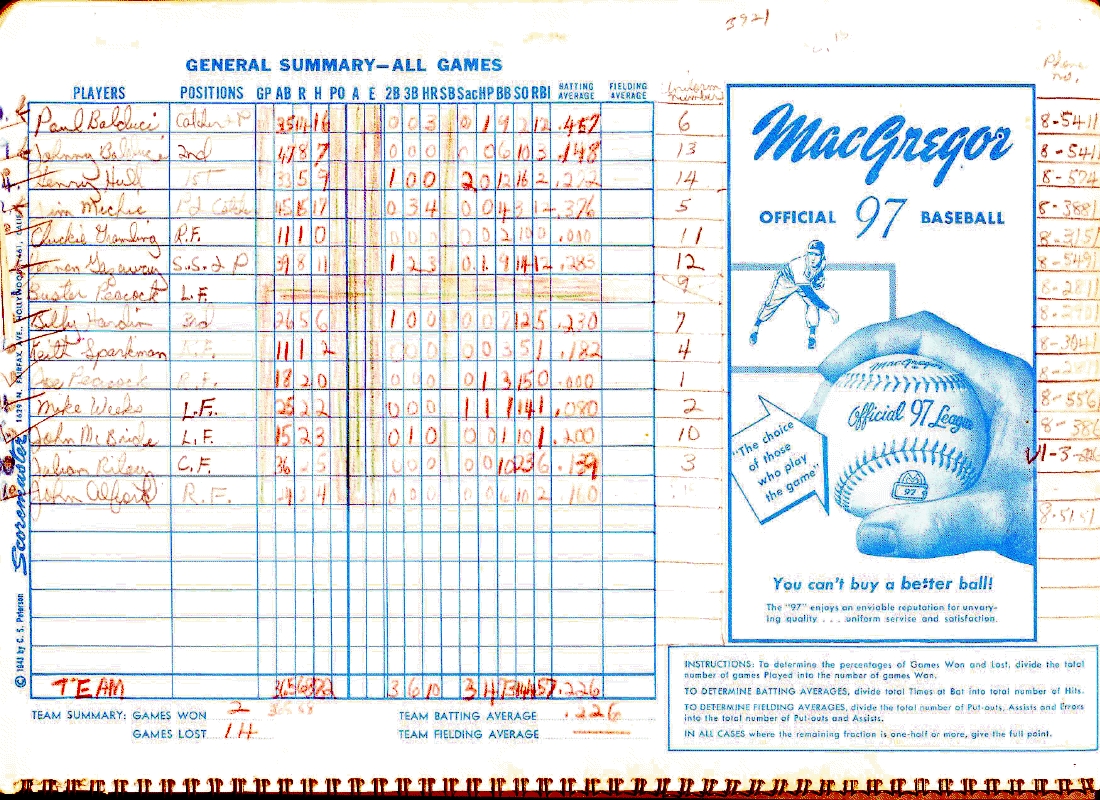 3921
GENERAL SUMMARY—ALL GAMES
PLAYERS POSITIONS GP AB R H PO A E 2B 3B HR SB Sac HP BB SO RBI BATTING AVERAGE FIELDING AVERAGE Uniform number Phone no.
Paul Balducci 35 14 16 0 0 3 0 1 9 2 12 .457 6 8-5411
Johnny Balducci 2nd 47 8 7 0 0 0 0 0 6 10 3 .148 13 8-541
Henny Hull 1st 33 5 9 1 0 0 2 0 12 16 2 .272 14 8-574
Jim Michie 45 15 17 0 3 4 0 0 4 3 12 .376 5 8-3881
Chuckie R.F. 11 1 0 0 0 0 0 0 2 10 0 .000 11 8-3151
S.S. & P 39 8 11 1 2 3 0 1 9 14 12 .283 12 8-5491
Buster Peacock L.F. 9 8-2811
Billy Hardin 3rd 26 5 6 1 0 0 0 0 7 12 5 .230 7
Keith Sparkman 11 1 2 0 0 0 0 0 3 5 1 .182 4 8-3041
Joe Peacock R.F. 18 2 0 0 0 0 0 1 3 15 0 .000 1
Mike Weeks L.F. 25 2 2 0 0 0 1 1 1 14 1 .080 2 8-5561
John McBride L.F. 15 2 3 0 1 0 0 0 1 10 1 .200 10 8-386
Julian Riley C.F. 36 2 5 0 0 0 0 0 10 23 6 .139 3
John Alford R.F. 3 4 0 0 0 0 0 6 10 2 .160 8-5151
TEAM 365 68 82 3 6 10 3 4 73 144 57 .226
TEAM SUMMARY: GAMES WON 2 TEAM BATTING AVERAGE .226
GAMES LOST 14 TEAM FIELDING AVERAGE
Scoremaster 1629 N. FAIRFAX AVE., HOLLYWOOD 46, CALIF.
© 1943 by C. S. Peterson
MacGregor
OFFICIAL 97 BASEBALL
MacGregor
Official 97 League
97
"The choice
of those
who play
the game"
You can't buy a better ball!
The "97" enjoys an enviable reputation for unvary-
ing quality . . . uniform service and satisfaction.
INSTRUCTIONS: To determine the percentages of Games Won and Lost, divide the total
number of games Played into the number of games Won.
TO DETERMINE BATTING AVERAGES, divide total Times at Bat into total number of Hits.
TO DETERMINE FIELDING AVERAGES, divide the total number of Put-outs, Assists and Errors
into the total number of Put-outs and Assists.
IN ALL CASES where the remaining fraction is one-half or more, give the full point.